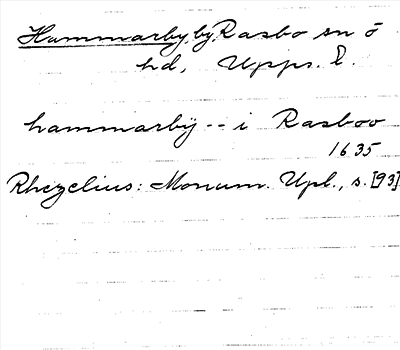 Hammarby, by, Rasbo sn o
hd, Upps. l.
hammarbÿ -- i Rasboo
1635
Rhezelius: Monum. Upl., s. [93]